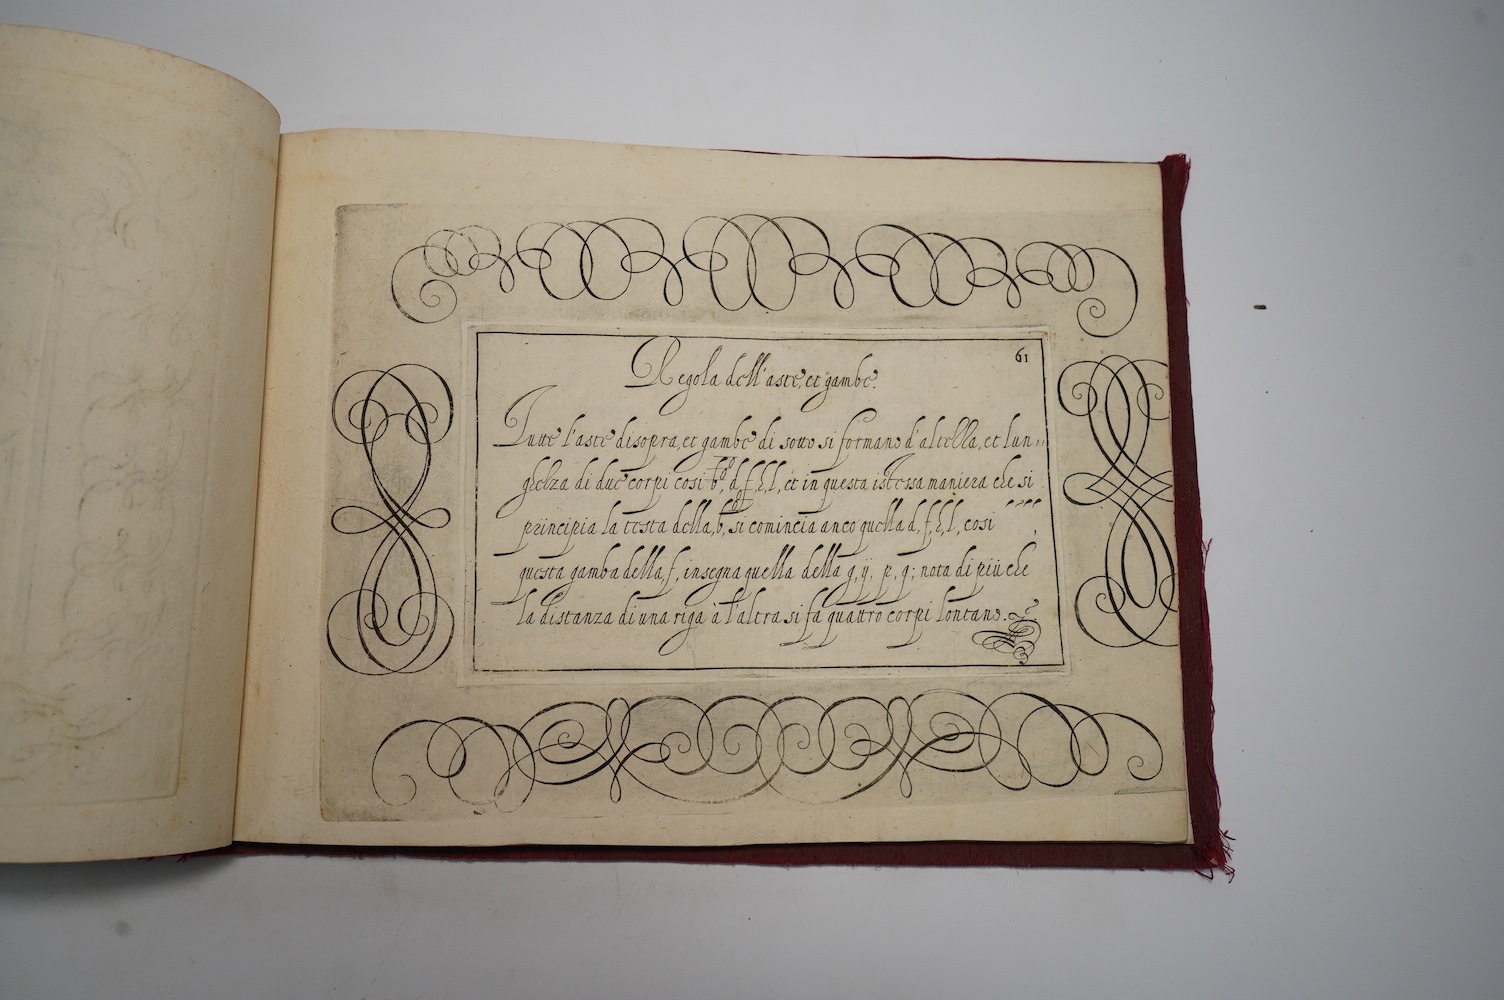 61
Regola dell'aste, et gambe.
Tutte l'aste disopra, et gambe di sotto si formano d'altella, et lun„
ghelza di due corpi cosi b, d, f, h, l, et in questa istessa maniera che si
principia la testa della, b, si comincia anco quella d, f, h, l, cosi
questa gamba della, f, insegna quella della g, ÿ, p, q; nota di più che
la distanza di una riga à l'altra si fa quattro corpi lontano.